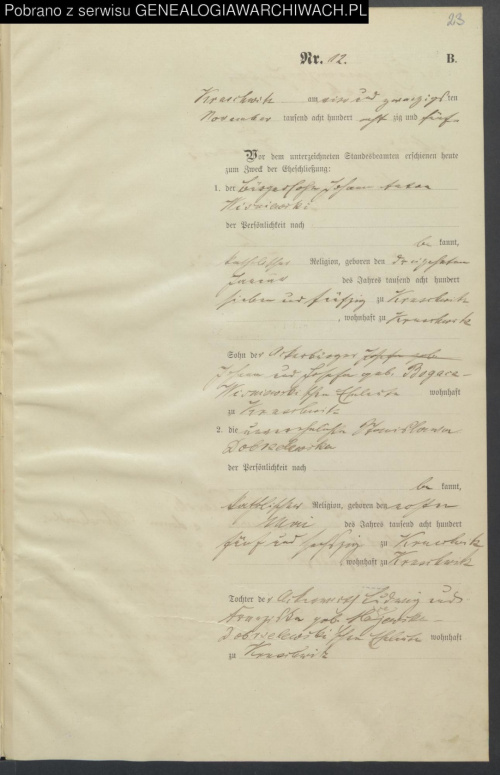 Pobrano z serwisu GENEALOGIAWARCHIWACH.PL
23
Nr. 12. B.
Kruschwitz am ein und zwanzigsten
November tausend acht hundert acht zig und fünf
Vor dem unterzeichneten Standesbeamten erschienen heute
zum Zweck der Eheschließung:
1. der Bürgersohn Johann
Wisniewski
der Persönlichkeit nach
be kannt,
katholischer Religion, geboren den dreizehnten
Januar des Jahres tausend acht hundert
sieben und fünfzig zu Kruschwitz
, wohnhaft zu Kruschwitz
Sohn der Ackerbürger
Johann und Josefa geb. Bogacz-
Wisniewski'schen Eheleute wohnhaft
zu Kruschwitz
2. die unverehelichte Stanislawa
Dobrzelewska
der Persönlichkeit nach
be kannt,
katholischer Religion, geboren den ersten
Mai des Jahres tausend acht hundert
fünf und sechszig zu Kruschwitz
, wohnhaft zu Kruschwitz
Tochter der Ludwig und
Franziska geb. Majewska-
Dobrzelewski'schen Eheleute wohnhaft
zu Kruschwitz